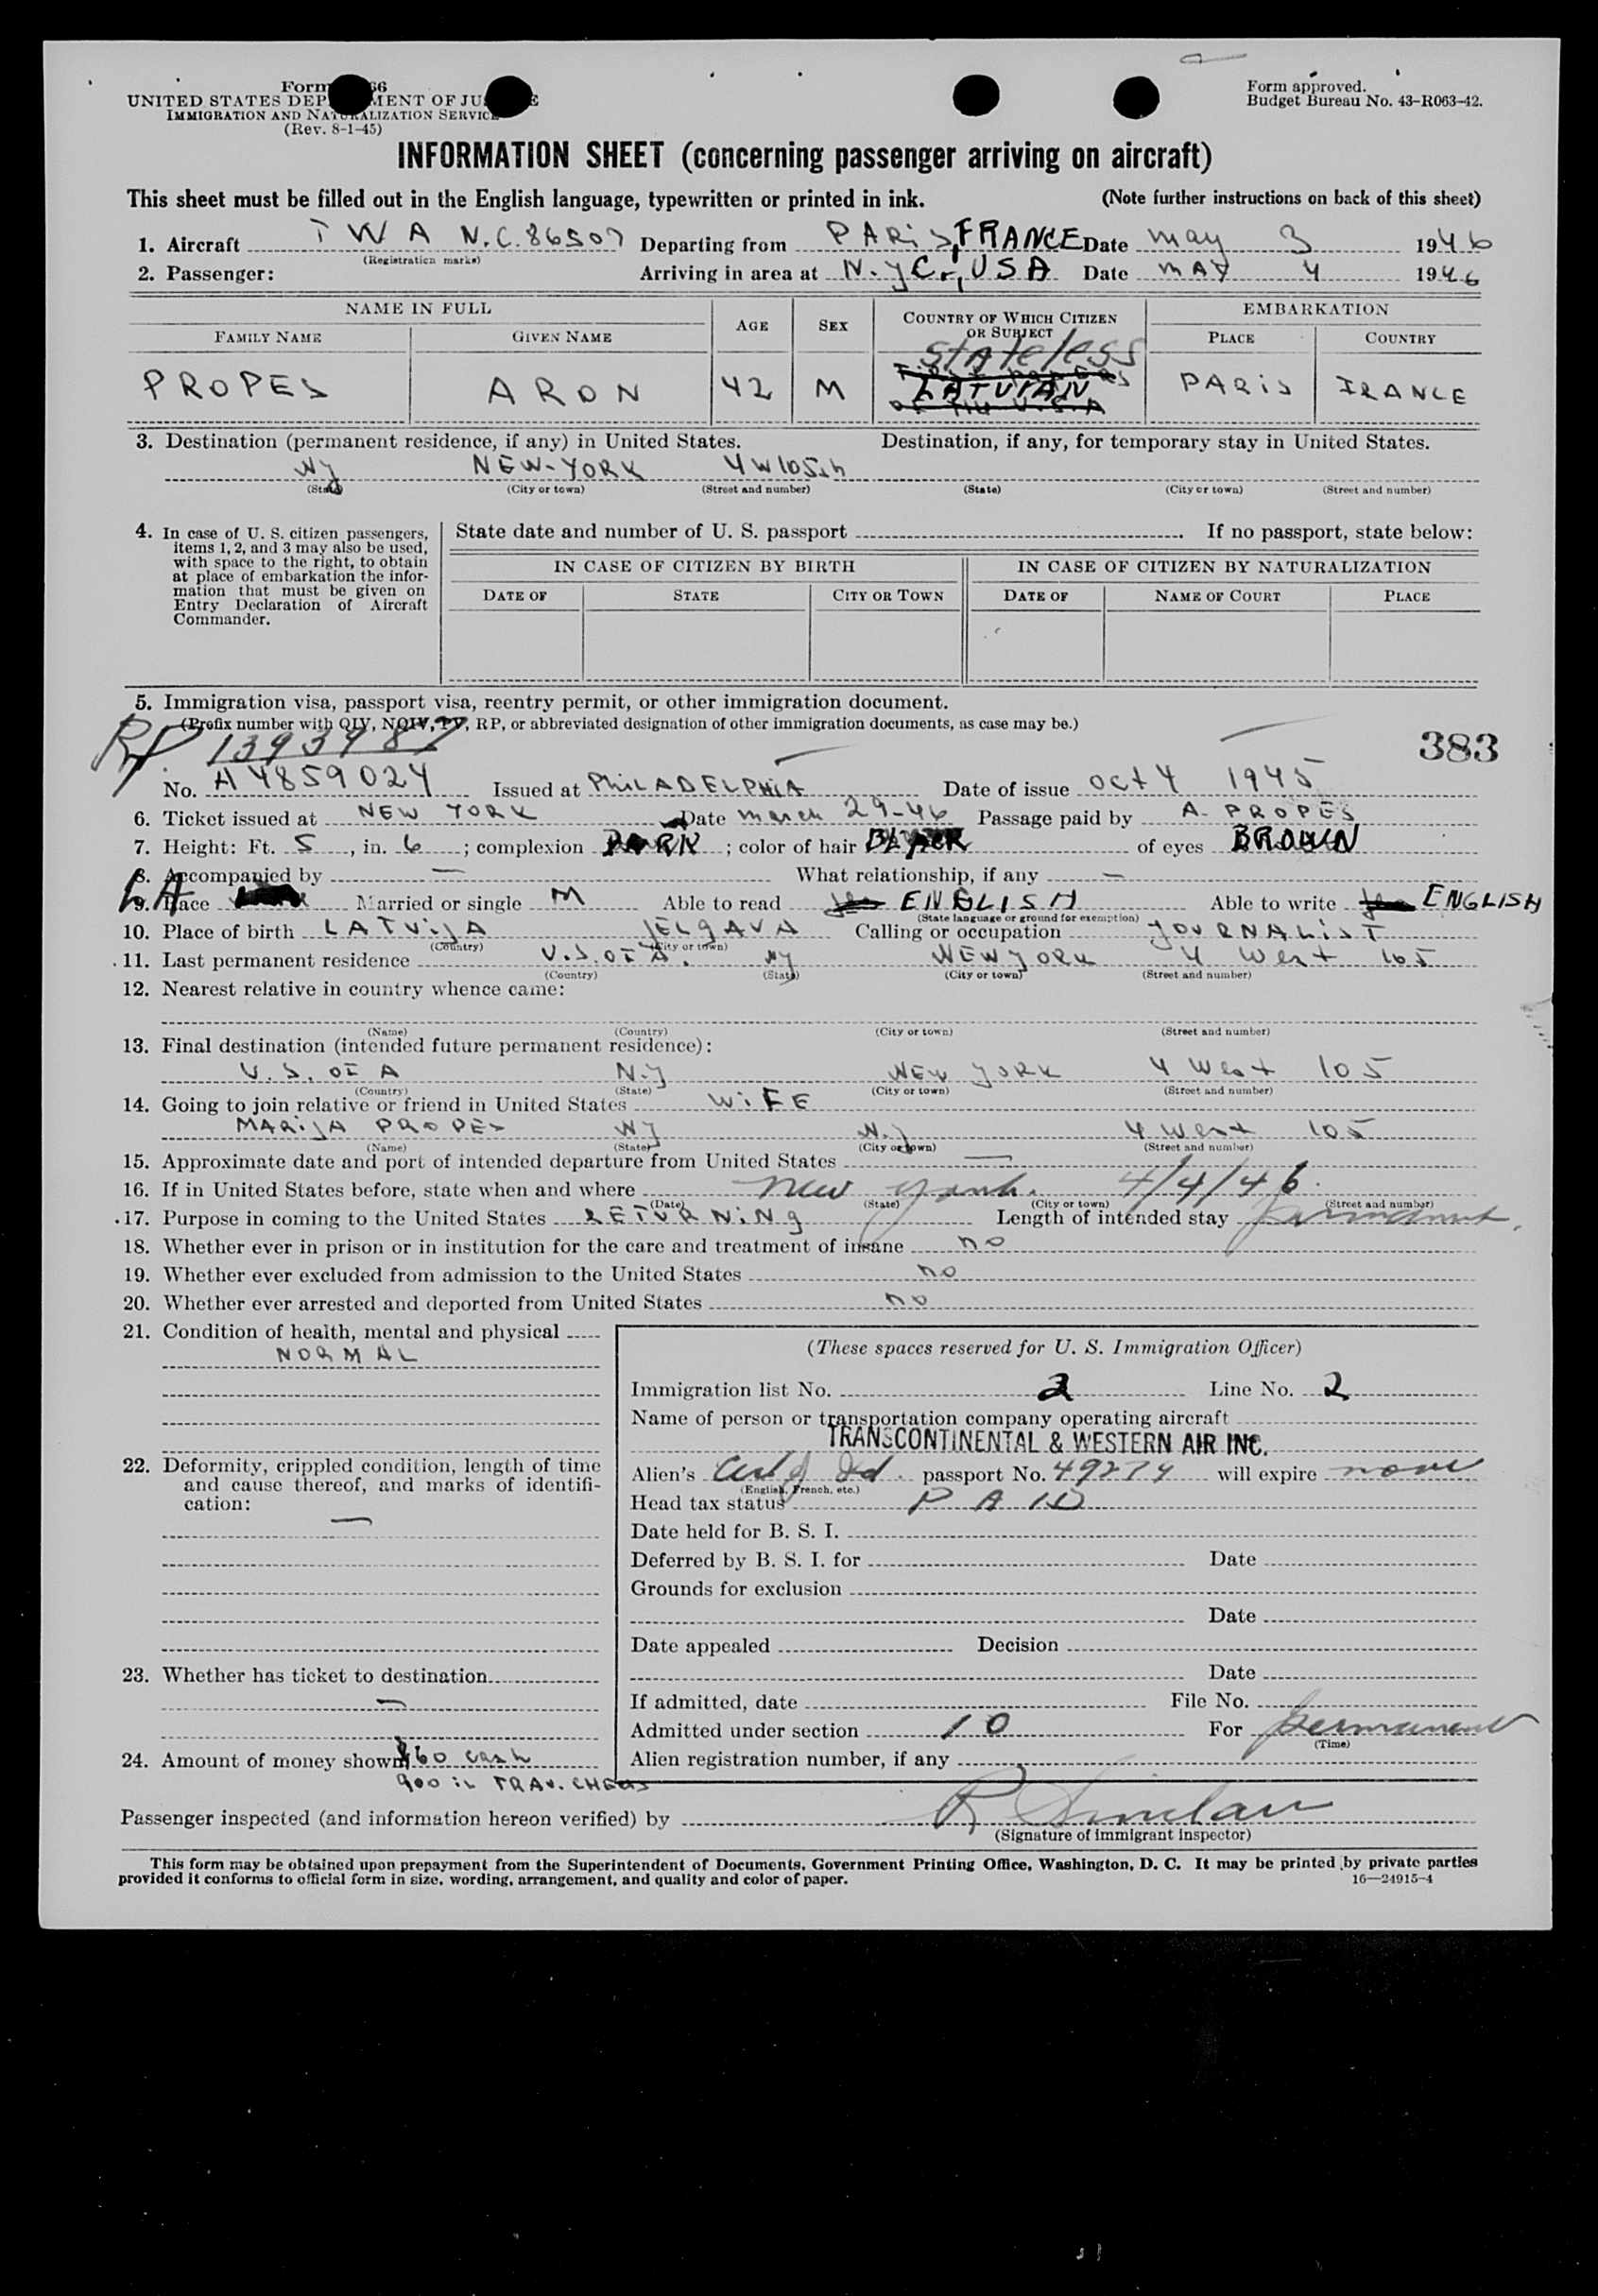 Form 66
UNITED STATES DEP MENT OF JU E
IMMIGRATION AND NATURALIZATION SERVICE
(Rev. 8-1-45)
Form approved.
Budget Bureau No. 43-R063-42.
INFORMATION SHEET (concerning passenger arriving on aircraft)
This sheet must be filled out in the English language, typewritten or printed in ink. (Note further instructions on back of this sheet)
1. Aircraft TWA N.C. 86507 Departing from PARiS, FRANCE Date may 3 1946
(Registration marks)
2. Passenger: Arriving in area at N.y.C., USA Date MAY 4 1946
NAME IN FULL AGE SEX COUNTRY OF WHICH CITIZEN OR SUBJECT EMBARKATION
FAMILY NAME GIVEN NAME PLACE COUNTRY
stateless
PROPES ARON 42 M LATVIAN PARiS FRANCE
OF THE U.S.A
3. Destination (permanent residence, if any) in United States. Destination, if any, for temporary stay in United States.
Ny NEW-YORK 4 W 105th
(State) (City or town) (Street and number) (State) (City or town) (Street and number)
4. In case of U. S. citizen passengers, items 1, 2, and 3 may also be used, with space to the right, to obtain at place of embarkation the information that must be given on Entry Declaration of Aircraft Commander.
State date and number of U. S. passport . If no passport, state below:
IN CASE OF CITIZEN BY BIRTH IN CASE OF CITIZEN BY NATURALIZATION
DATE OF STATE CITY OR TOWN DATE OF NAME OF COURT PLACE
5. Immigration visa, passport visa, reentry permit, or other immigration document.
(Prefix number with QIV, NQIV, PV, RP, or abbreviated designation of other immigration documents, as case may be.)
RP 1393987 383
No. A 4859024 Issued at PHiLADELPHiA Date of issue oct 4 1945
6. Ticket issued at NEW YORK Date march 29-46 Passage paid by A. PROPES
7. Height: Ft. 5, in. 6; complexion DARK; color of hair BLACK of eyes BROWN
8. Accompanied by — What relationship, if any —
LA
9. Race Married or single M Able to read yes ENGLISH Able to write yes ENGLISH
(State language or ground for exemption)
10. Place of birth LATViJA JELgAVA Calling or occupation JOURNALiST
(Country) (City or town)
11. Last permanent residence U.S. OF A. Ny NEW YORK 4 West 105
(Country) (State) (City or town) (Street and number)
12. Nearest relative in country whence came:
(Name) (Country) (City or town) (Street and number)
13. Final destination (intended future permanent residence):
U.S. OF A N.y NEW YORK 4 West 105
(Country) (State) (City or town) (Street and number)
14. Going to join relative or friend in United States WiFE
MARiJA PROPES Ny N.y 4 West 105
(Name) (State) (City or town) (Street and number)
15. Approximate date and port of intended departure from United States —
16. If in United States before, state when and where New York. 4/4/46.
(Date) (State) (City or town) (Street and number)
17. Purpose in coming to the United States RETURNiNg Length of intended stay permanent.
18. Whether ever in prison or in institution for the care and treatment of insane no
19. Whether ever excluded from admission to the United States no
20. Whether ever arrested and deported from United States no
21. Condition of health, mental and physical
NORMAL
22. Deformity, crippled condition, length of time and cause thereof, and marks of identification:
—
23. Whether has ticket to destination
—
24. Amount of money shown $60 cash
900 in TRAV. CHECKS
(These spaces reserved for U. S. Immigration Officer)
Immigration list No. 2 Line No. 2
Name of person or transportation company operating aircraft
TRANSCONTINENTAL & WESTERN AIR INC.
Alien's Cert of Id. passport No. 49274 will expire none
(English, French, etc.)
Head tax status PAID
Date held for B. S. I.
Deferred by B. S. I. for Date
Grounds for exclusion
Date
Date appealed Decision
Date
If admitted, date File No.
Admitted under section 10 For permanent
(Time)
Alien registration number, if any
Passenger inspected (and information hereon verified) by R Sinclair
(Signature of immigrant inspector)
This form may be obtained upon prepayment from the Superintendent of Documents, Government Printing Office, Washington, D. C. It may be printed by private parties
provided it conforms to official form in size, wording, arrangement, and quality and color of paper. 16—24915-4